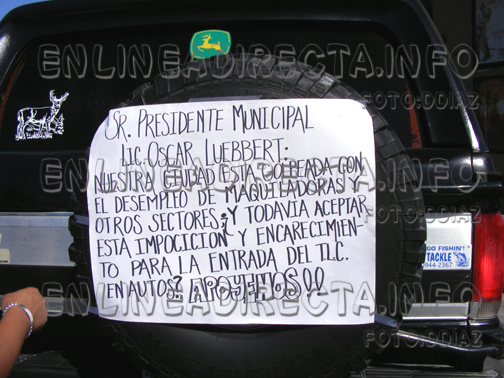 ENLINEADIRECTA.INFO
FOTO:DDIAZ
SR. PRESIDENTE MUNICIPAL
LIC. OSCAR LUEBBERT:
NUESTRA CIUDAD ESTA GOLPEADA CON
EL DESEMPLEO DE MAQUILADORAS Y
OTROS SECTORES, Y TODAVIA ACEPTAR
ESTA IMPOCICION Y ENCARECIMIEN-
TO PARA LA ENTRADA DEL TLC.
EN AUTOS? APOYENOS!!
ENLINEADIRECTA.INFO
FOTO:DDIAZ
GO FISHIN'
TACKLE
944-2367
ENLINEADIRECTA.INFO
FOTO:DDIAZ